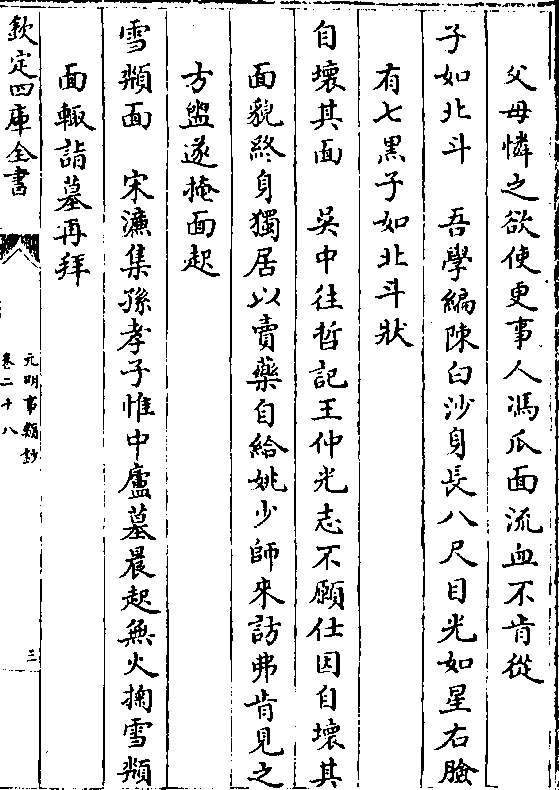 父母憐之欲使更事人馮爪面流血不肯從
子如北斗　吾學編陳白沙身長八尺目光如星右臉
有七黑子如北斗狀
自壞其面　吳中往哲記王仲光志不願仕因自壞其
面貌終身獨居以賣藥自給姚少師來訪弗肯見之
方盥遂掩面起
雪颒面　宋濂集孫孝子惟中廬墓晨起無火掬雪颒
面輒詣墓再拜
欽定四庫全書
元明事類鈔
卷二十八
三